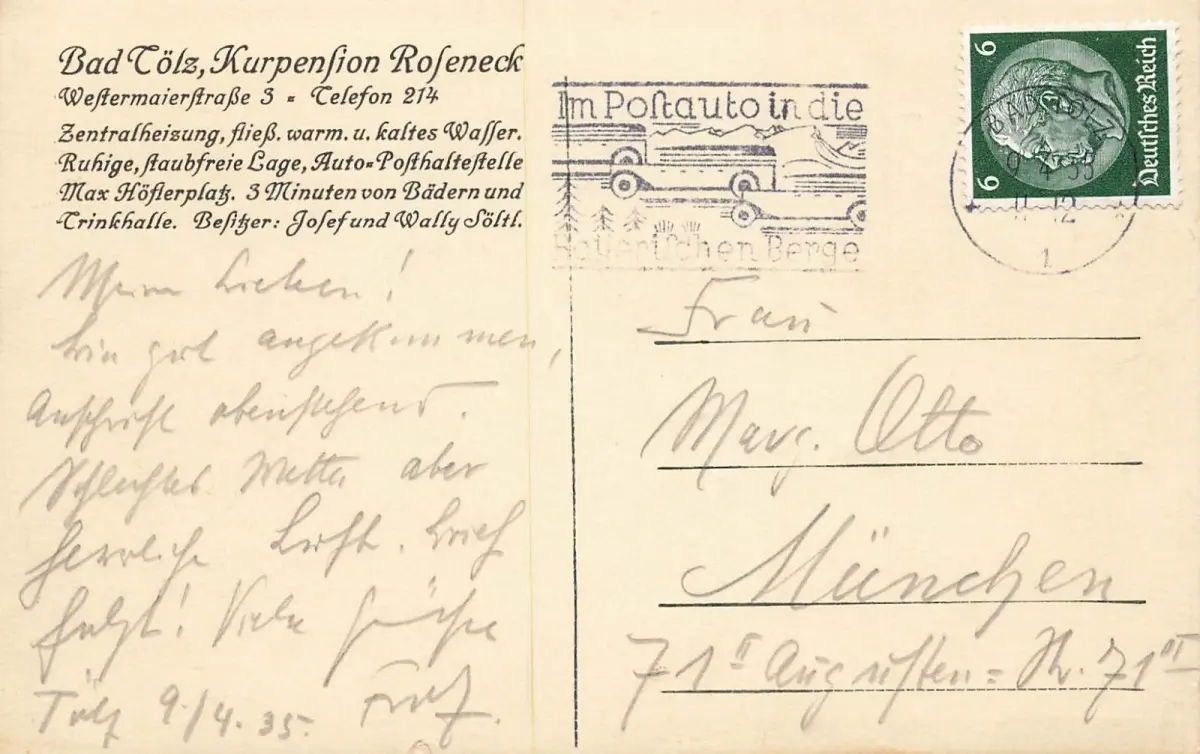 Bad Tölz, Kurpension Roseneck
Westermaierstraße 3 = Telefon 214
Zentralheizung, fließ. warm. u. kaltes Wasser.
Ruhige, staubfreie Lage, Auto=Posthaltestelle
Max Höflerplatz. 3 Minuten von Bädern und
Trinkhalle. Besitzer: Josef und Wally Söltl.
Meine Lieben!
bin gut angekommen,
Anschrift obenstehend.
Schlechtes Wetter aber
herrliche Luft. Brief
folgt! Viele Grüße
Tölz 9./4.35.
Im Postauto in die
Bayerischen Berge
6
Deutsches Reich
6
BAD TÖLZ
9.4.35
11-12
1
Frau
Marg. Otto
München
71 II Augusten=Str. 71 III